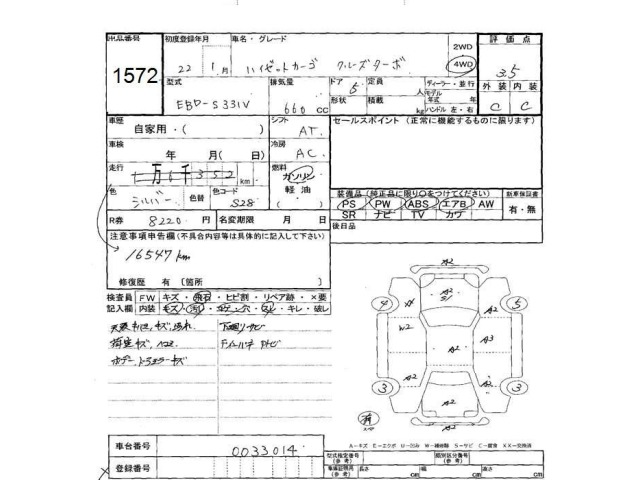 出品番号 初度登録年月 車名・グレード 評価点
1572 22年 1月 ハイゼットカーゴ クルーズターボ 2WD 4WD 3.5
型式 排気量 ドア 定員 ディーラー・並行 外装 内装
EBD-S331V 660 cc 5 人 モデル 年式 年 C C
形状 積載 kg ハンドル 左・右
車歴 自家用・( ) シフト AT セールスポイント (正常に機能するものに限ります)
車検 年 月( 日) 冷房 AC
走行 一万6千352 km 燃料 ガソリン 軽油
色 シルバー 色替 色コード S28 装備品 (純正品に限り○をつけてください) 新車保証書
PS PW ABS エアB AW 有・無
SR ナビ TV カワ
R券 8220 円 名変期限 月 日 後日品
注意事項申告欄 (不具合内容等は具体的に記入して下さい)
16547 km
修復歴 有 〔箇所
検査員 FW キズ・飛石・ヒビ割・リペア跡・×要
記入欄 内装 キズ・汚れ・コゲ・穴・スレ・キレ・破レ
荷室キズ
A2
A2
S1
4 5
W2 A2 A3
A2
3 3
A2
A2
有
A-キズ E-エクボ U-凹み W-補修跡 S-サビ C-腐食 XX-交換済
車台番号 0033014
登録番号
型式指定番号 (参考) 類別区分番号 (参考)
車庫証明用 (参考) 長さ cm 幅 cm 高さ cm